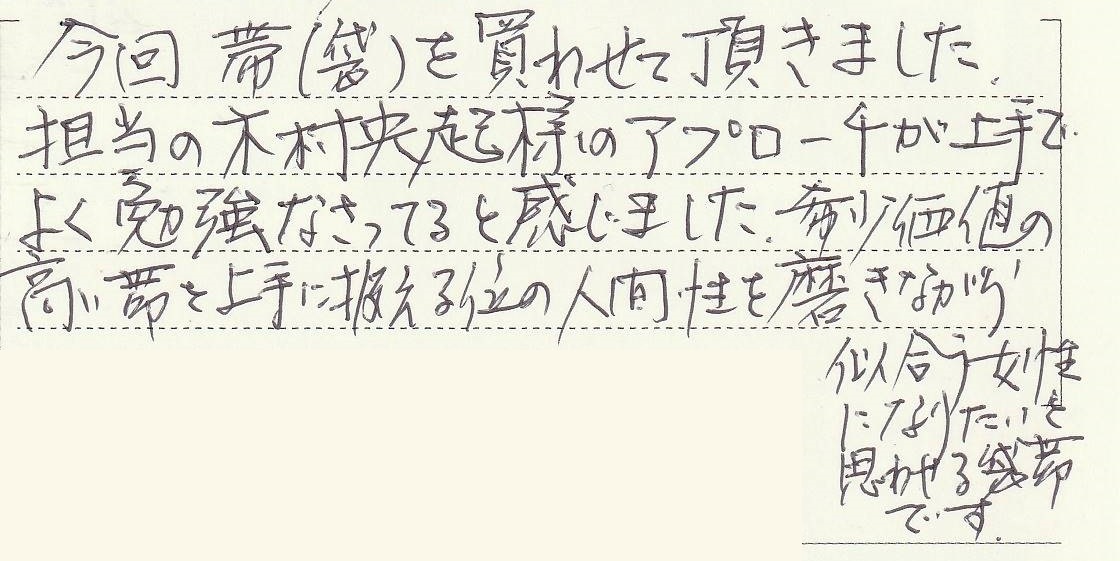 今回 帯(袋)を買わせて頂きました.
担当の木村央起様のアプローチが上手で
よく勉強なさってると感じました.
価値の
高い帯を上手に扱える位の人間性を磨きながら
似合う女性
になりたいを
思わせる袋帯
です.